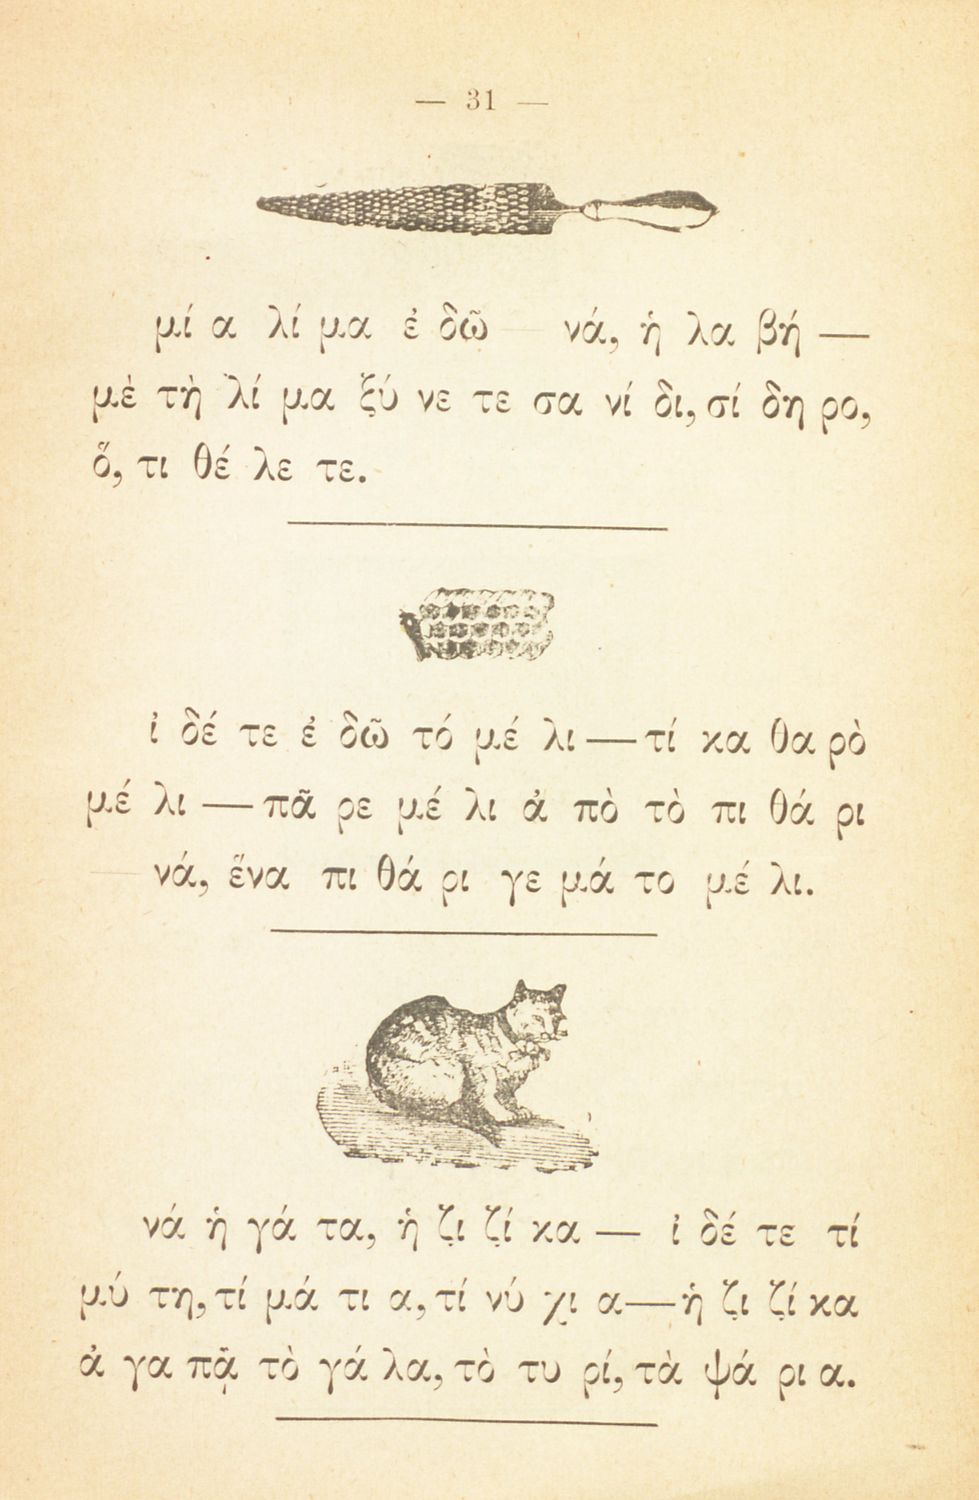 — 31 —
μί α λί μα ἐ δῶ νά, ἡ λα βή —
μὲ τὴ λί μα ξύ νε τε σα νί δι, σί δη ρο,
ὅ, τι θέ λε τε.
ἰ δέ τε ἐ δῶ τό μέ λι — τί κα θα ρὸ
μέ λι — πᾶ ρε μέ λι ἀ πὸ τὸ πι θά ρι
νά, ἕνα πι θά ρι γε μά το μέ λι.
νά ἡ γά τα, ἡ ζι ζί κα — ἰ δέ τε τί
μύ τη, τί μά τι α, τί νύ χι α — ἡ ζι ζί κα
ἀ γα πᾷ τὸ γά λα, τὸ τυ ρί, τὰ ψά ρι α.